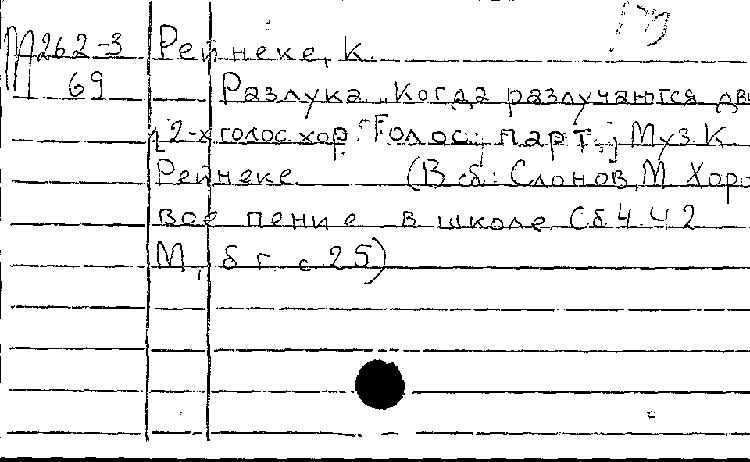 М262-3 Рейнеке, К.
69 Разлука „Когда разлучаются дв
2-х голос хор. [Голос. парт.] Муз. К.
Рейнеке (В сб: Слонов, М. Хоро
вое пение в школе Сб 4. ч 2
М, б г с 25)